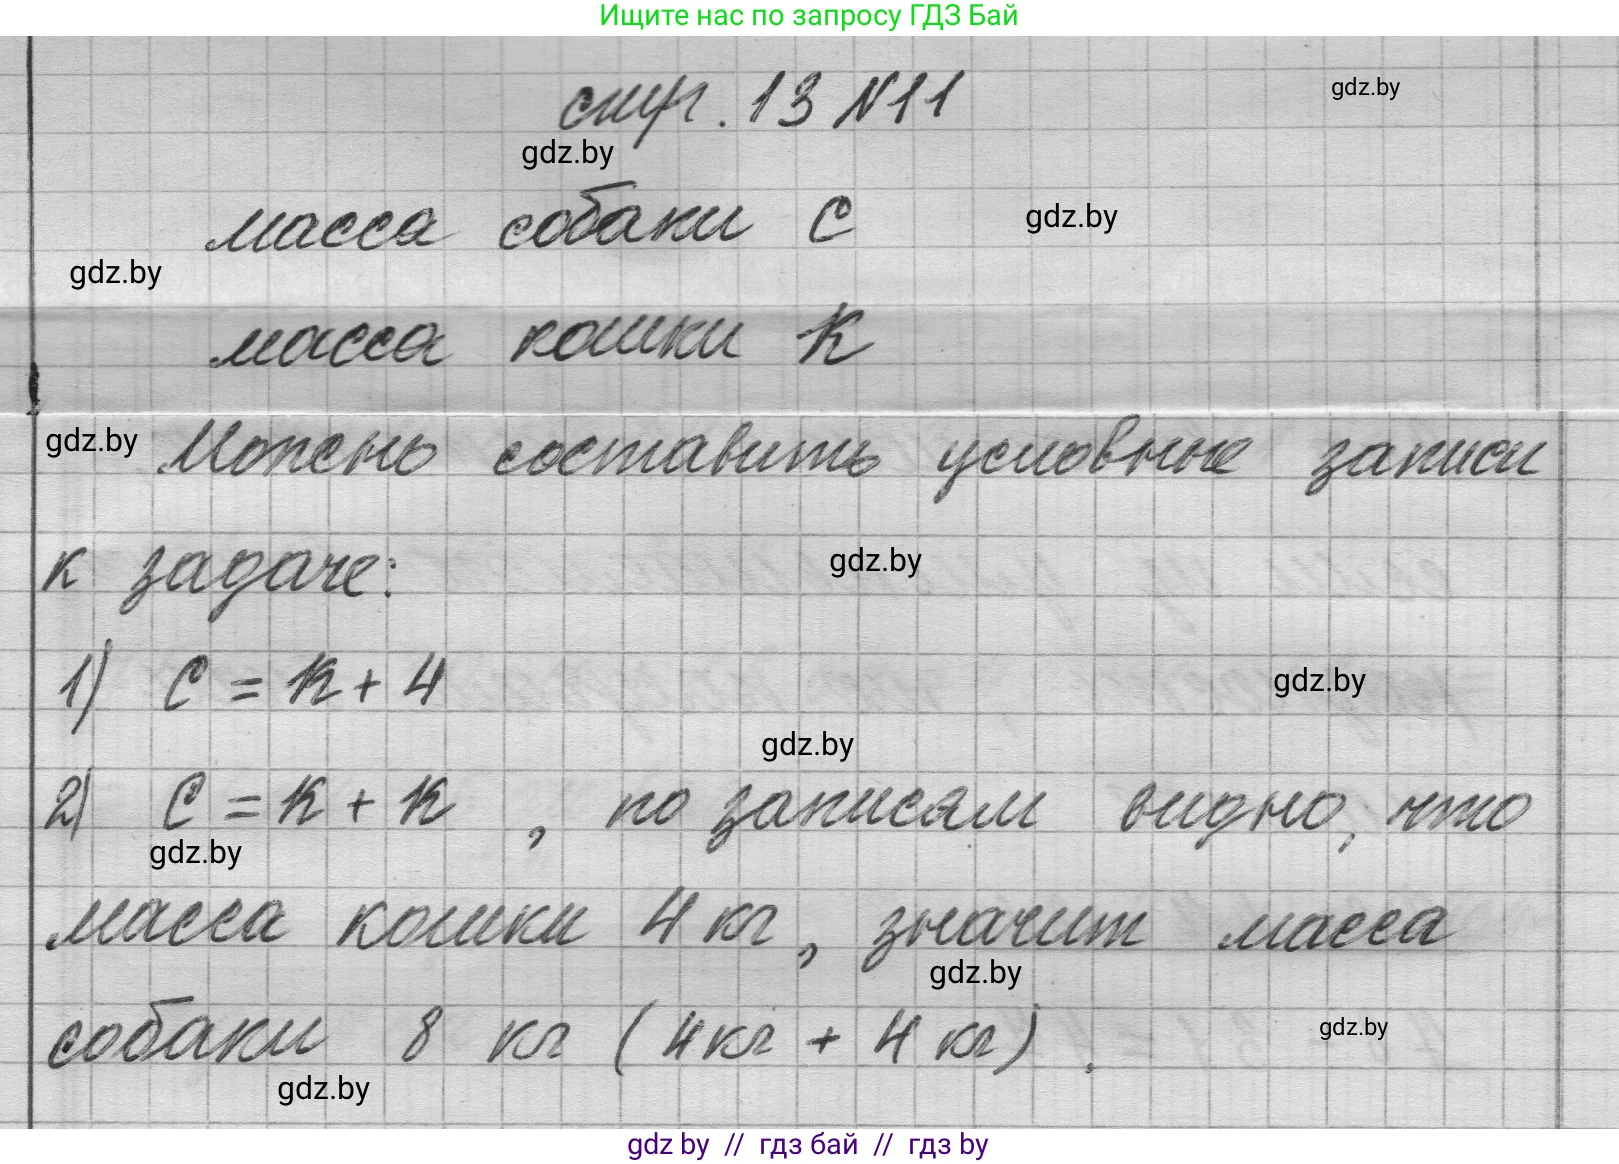 Ищите нас по запросу ГДЗ Бай
стр. 13 N11
gdz.by
gdz.by
масса собаки С
gdz.by
gdz.by
масса кошки К
gdz.by
Можно составить условные записи
к задаче:
gdz.by
1) С = К + 4
gdz.by
gdz.by
2) С = К + К , по записям видно, что
gdz.by
масса кошки 4 кг, значит масса
gdz.by
собаки 8 кг (4 кг + 4 кг).
gdz.by
gdz.by
gdz by // гдз бай // гдз by